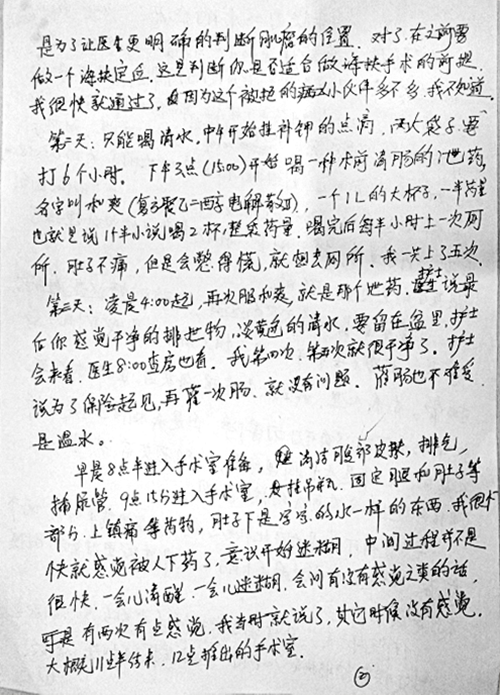 是为了让医生更明确的判断肌瘤的位置。对了，在之前要
做一个海扶定位，这是判断你是否适合做海扶手术的前提。
我很快就通过了，因为这个被拒的病友小伙伴多不多，我不知道
第二天：只能喝清水，中午开始挂补钾的点滴，两大袋子，要
打6个小时。下午3点(15:00)开始喝一种术前清肠的泄药，
名字叫和爽(复方聚乙二醇电解散Ⅱ)，一个1L的大杯子，一半药量
也就是说1个半小说喝2杯整袋药量，喝完后每半小时上一次厕
所，肚子不痛，但是会憋得慌，就想去厕所，我一共上了五次
第三天：凌晨4:00起，再次服和爽，就是那个泄药，护士说最
后你感觉干净的排泄物，淡黄色的清水，要留在盆里，护士
会来看，医生8:00查房也看。我第四次、第五次就很干净了。护士
说为了保险起见，再灌一次肠，就没有问题。灌肠也不难受，
是温水。
早晨8点半进入手术室准备，清洁肚部皮肤，排气，
插尿管。9点15分进入手术室，固定腿和肚子等
部分，上镇痛等药物，肚子下是字字的水一样的东西，我很快
快就感觉被人下药了，意识开始迷糊，中间过程并不是
很快，一会儿清醒，一会儿迷糊，会问有没有感觉之类的话，
可是有两次有点感觉，我当时就说了，其它时候没有感觉，
大概11点半结束，12点推出的手术室。
②